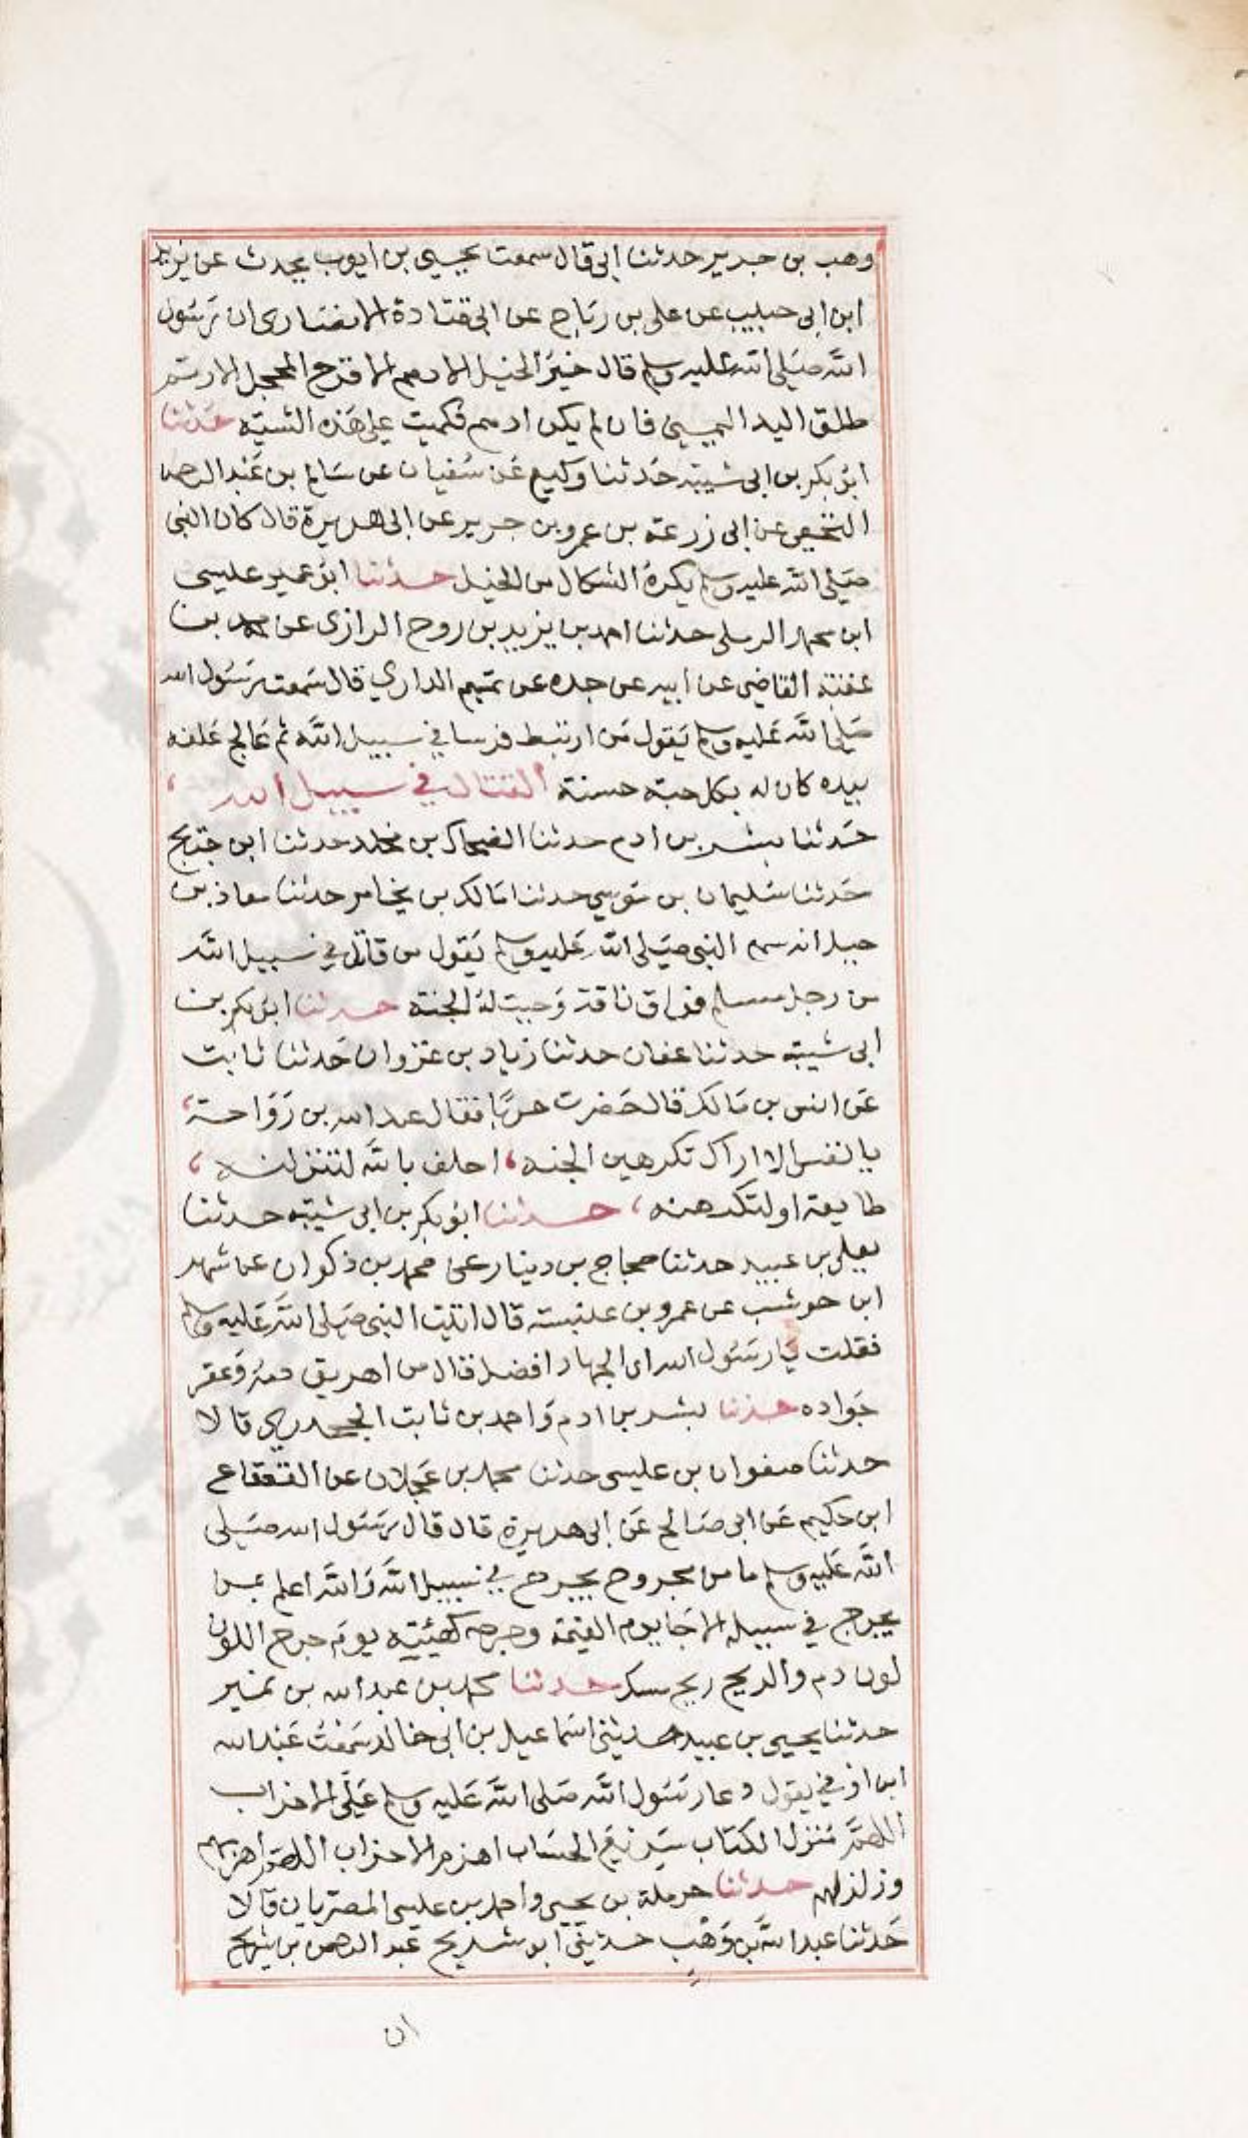 وهب بن جرير حدثنا ابى قال سمعت يحيى بن ايوب يحدث عن يزيد
ابن ابى حبيب عن على بن رباح عن ابى قتادة الانصارى ان رسول
الله صلى الله عليه وسلم قال خير الخيل الادهم الاقرح المحجل الارثم
طلق اليد اليمينى فان لم يكن ادهم فكميت على هذه الشية حدثنا
ابو بكر بن ابى شيبة حدثنا وكيع عن سفيان عن سالم بن عبد الرحمن
النخعى عن ابى زرعة بن عمرو بن جرير عن ابى هريرة قال كان النبى
صلى الله عليه وسلم يكره الشكال من الخيل حدثنا ابو عمير عيسى
ابن محمد الرملى حدثنا احمد بن يزيد بن روح الدارى عن محمد بن
عقبة القاضى عن ابيه عن جده عن تميم الدارى قال سمعت رسول الله
صلى الله عليه وسلم يقول من ارتبط فرسا فى سبيل الله ثم عالج علفه
بيده كان له بكل حبة حسنة القتال فى سبيل الله
حدثنا بشر بن ادم حدثنا الضحاك بن مخلد حدثنا ابن جريج
حدثنا سليمان بن موسى حدثنا مالك بن يخامر حدثنا معاذ بن
جبل انه سمع النبى صلى الله عليه وسلم يقول من قاتل فى سبيل الله
من رجل مسلم فواق ناقة وجبت له الجنة حدثنا ابو بكر بن
ابى شيبة حدثنا عفان حدثنا زياد بن غزوان حدثنا ثابت
عن انس بن مالك قال حضرت حربا فقال عبد الله بن رواحة،
يا نفس الا اراك تكرهين الجنه، احلف بالله لتنزلنه،
طايعة او لتكرهنه، حدثنا ابو بكر بن ابى شيبة حدثنا
يعلى بن عبيد حدثنا حجاج بن دينار عن محمد بن ذكوان عن شهر
ابن حوشب عن عمرو بن عنبسة قال اتيت النبى صلى الله عليه وسلم
فقلت يا رسول الله اى الجهاد افضل قال من اهريق دمه وعقر
جواده حدثنا بشر بن ادم واحمد بن ثابت الجحدرى قالا
حدثنا صفوان بن عيسى حدثنا محمد بن عجلان عن القعقاع
ابن حكيم عن ابى صالح عن ابى هريرة قال قال رسول الله صلى
الله عليه وسلم ما من مجروح يجرح فى سبيل الله والله اعلم بمن
يجرح فى سبيله الا جا يوم القيمة وجرحه كهيئته يوم جرح اللون
لون دم والريح ريح مسك حدثنا محمد بن عبد الله بن نمير
حدثنا يحيى بن عبيد حدثنى اسماعيل بن ابى خالد سمعت عبد الله
ابن اوفى يقول دعا رسول الله صلى الله عليه وسلم على الاحزاب
اللهم منزل الكتاب سريع الحساب اهزم الاحزاب اللهم اهزمهم
وزلزلهم حدثنا حرملة بن يحيى واحمد بن عيسى المصريان قالا
حدثنا عبد الله بن وهب حدثنى ابو شريح عبد الرحمن بن شريح
ان